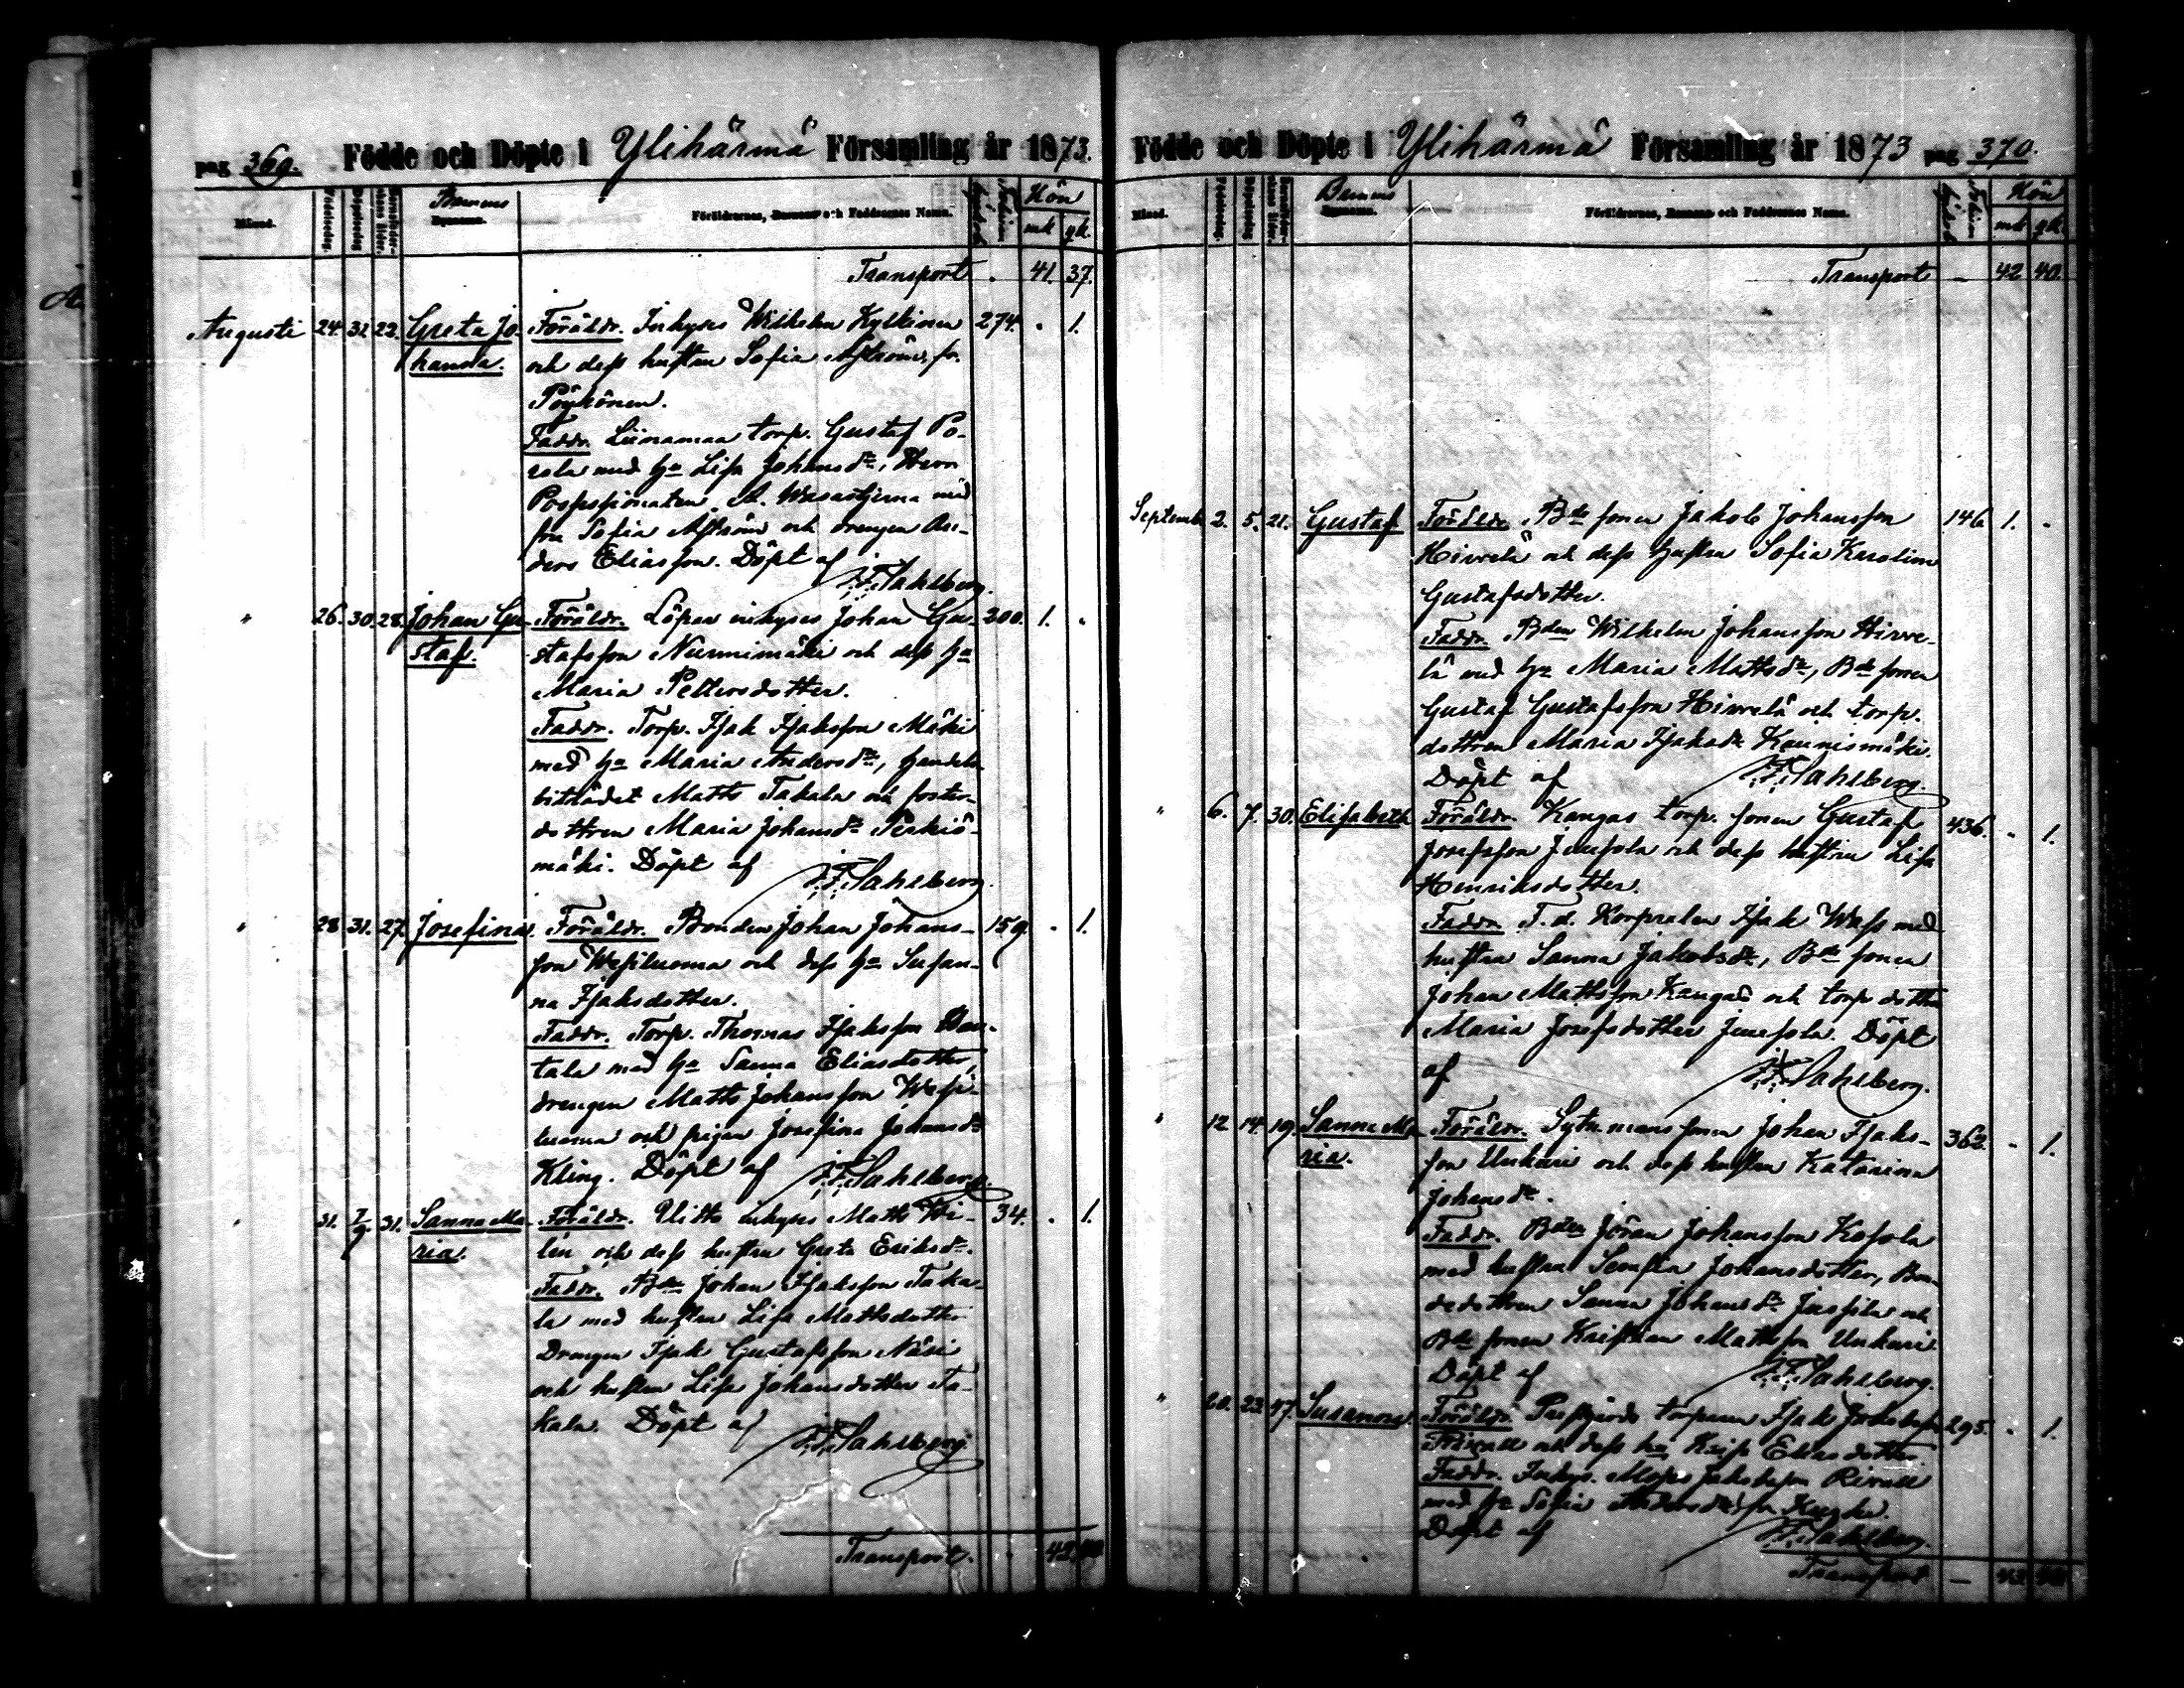 pag 369. Födde och Döpte i Ylihärmä Församling år 1873.
Månad. Födelsedag. Döpelsedag Barnens Föräldrarnes, Barnens och Faddrarnes Namn. Kön
mk qk.
Transport . 41. 37.
Augusti 24. 31. 23. Greta Jo- Föräldr. Inhyses Wilhelm Kylkinen 274. . 1.
hanna. och dess hustru Sofia för.
Pöyhönen.
Faddr. Liinamaa torp. Gustaf Po-
rola med ha Lisa Johansdr, Herr
Possessionaten A. Wasastjerna med
fru Sofia Aström och drengen An-
ders Eliasson. Döpt af
F. F. Sahlberg.
" 26. 30. 28. Johan Gu- Föräldr. Löpar inhyses Johan Gu- 200. 1. .
staf. stafsson Nurmimäki och dess ha
Maria Pettersdotter.
Faddr. Torp. Isak Isaksson Mäki
med ha Maria Andersdr, handels
biträdet Matts Takala och foster-
dottren Maria Johansdr Perkiö-
mäki. Döpt af F. F. Sahlberg.
" 28. 31. 27. Josefina. Föräldr. Bonden Johan Johans- 159. . 1.
son Wesiluoma och dess ha Susan-
na Isaksdotter.
Faddr. Torp. Thomas Isaksson Han-
tala med ha Sanna Eliasdotter,
drengen Matts Johansson Wesi-
luoma och pigan Josefina Johansdr
Kling. Döpt af F. F. Sahlberg.
" 31. 7/9 31. Sanna Ma- Föräldr. Uitto inhyses Matts Wi- 34. . 1.
ria. len och dess hustru Greta Eriksdr.
Faddr. Bden Johan Isaksson Taka-
la med hustru Lisa Mattsdotter
Drengen Isak Gustafsson Näsi
och hustru Lisa Johansdotter Ta-
kala. Döpt af
F. F. Sahlberg.
Transport. . 42. 40
Födde och Döpte i Ylihärmä Församling år 1873 pag 370.
Månad. Födelsedag. Döpelsedag Barnens Föräldrarnes, Barnens och Faddrarnes Namn. Kön
mk qk.
Transport — 42 40.
Septemb. 2. 5. 21. Gustaf Föräldr. Bde sonen Jakob Johansson 146 1. .
Hirvelä och dess hustru Sofia Karolina
Gustafsdotter.
Faddr. Bden Wilhelm Johansson Hirve-
lä med ha Maria Mattsdr, Bde sonen
Gustaf Gustafsson Hirvelä och torp.
dottren Maria Isaksdr Kaunismäki.
Döpt af F. F. Sahlberg.
" 6. 7. 30. Elisabeth Föräldr. Kangas torp. sonen Gustaf 436. . 1.
Josefsson Jussila och dess hustru Lisa
Henriksdotter.
Faddr. F. d. Korpralen Isak Wass med
hustru Sanna Jakobsdr, Bde sonen
Johan Mattsson Kangas och torp dottren
Maria Josefsdotter Jussila. Döpt
af F. F. Sahlberg.
" 12 14. 19. Sanna Ma- Föräldr. Sytn.mans sonen Johan Isaks- 362. . 1.
ria. son Unkuri och dess hustru Katarina
Johansdr.
Faddr. Bden Jöran Johansson Kosola
med hustru Serafia Johansdotter, Bon-
dedottren Sanna Johansdr Jussila och
Bde sonen Kristian Mattsson Unkuri.
Döpt af F. F. Sahlberg.
" 20. 23. 47. Susanna. Föräldr. torparen Isak Jakobsson 295. . 1.
och dess ha Eliasdotter
Faddr. Inhys. Jakobsson
med ha Sofia Andersdr
Döpt af F. F. Sahlberg.
Transport — 43